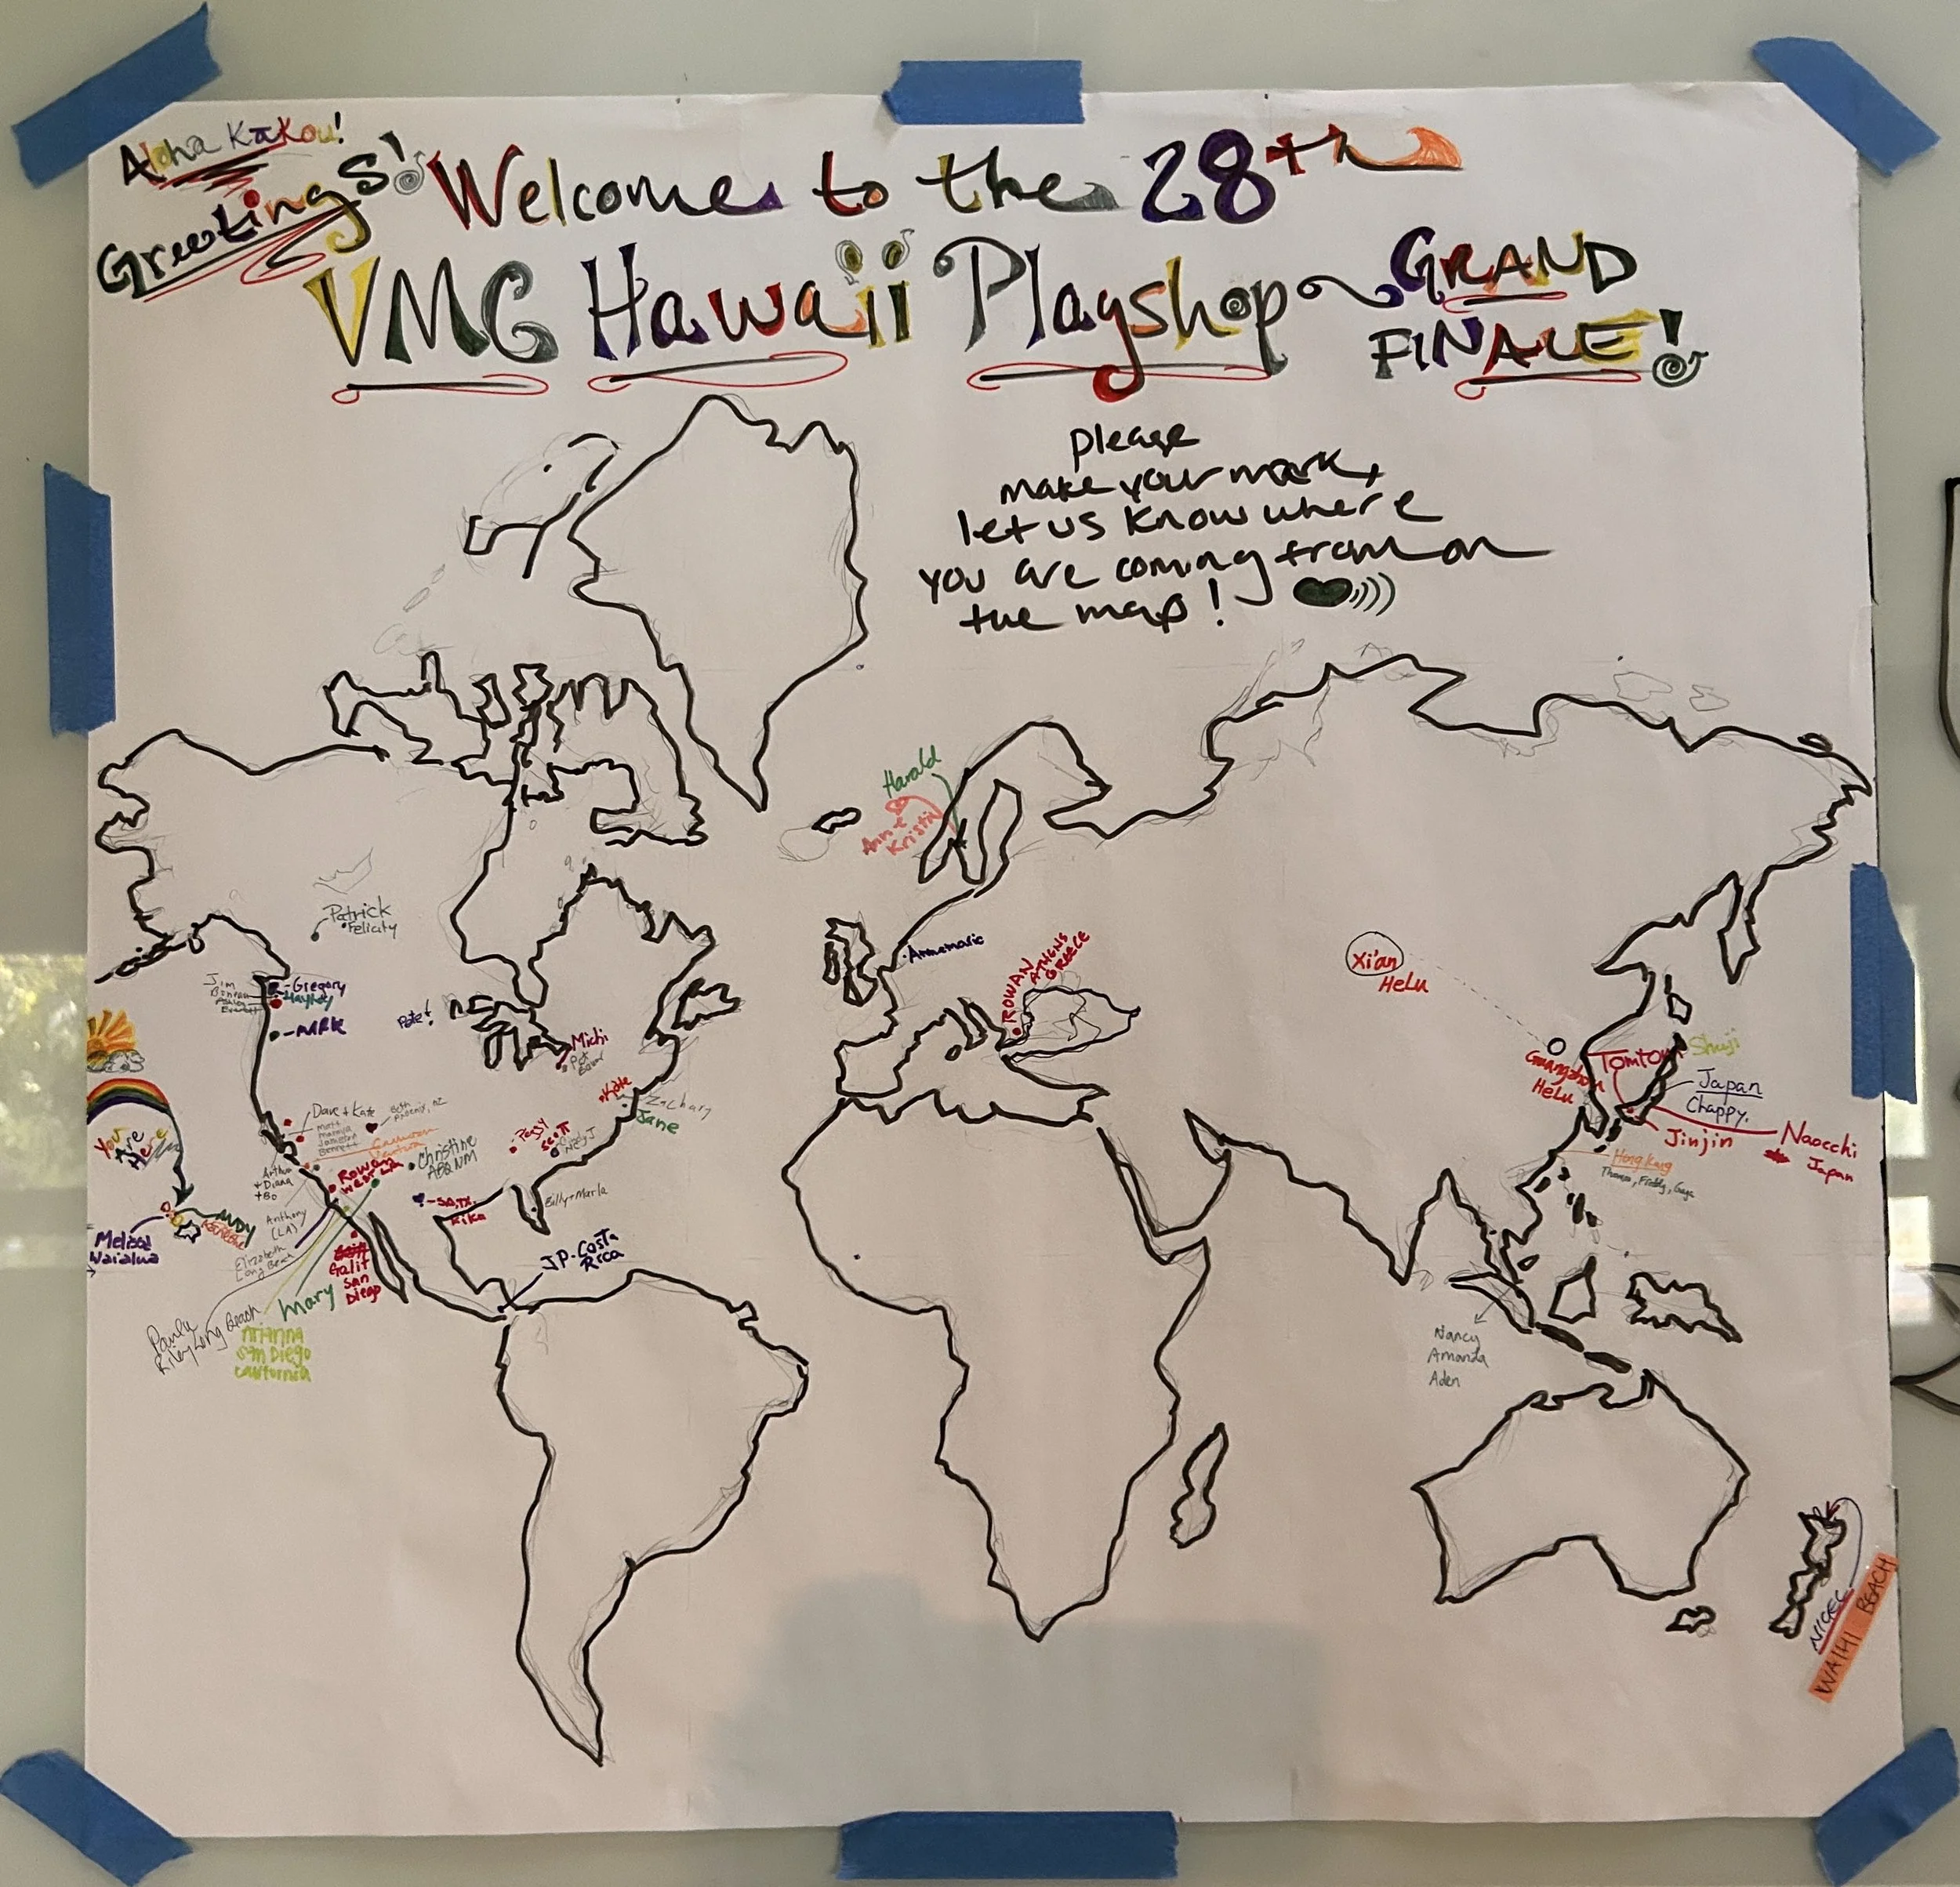 Aloha Kākou!
Greetings!
Welcome to the 28th
VMC Hawaii Playshop
GRAND
FINALE!
please
make your mark,
let us know where
you are coming from on
the map!
Harald
Ann +
Kristin
Patrick
Felicity
Jim
Gregory
Hayley
MRK
Pete!
Michi
Kate
Zachary
Jane
Peggy
Scott
Dave + Kate
Beth
Phoenix, AZ
Matt
Bennett
Cameron
Christine
ABQ NM
Rowan
Arthur
+ Diana
+ Bo
SA, TX
Kika
Billy + Marla
Anthony
(LA)
Elizabeth
Long Beach
JP-Costa
Rica
Galit
San
Diego
Mary
Paula
Riley Long Beach
Arianna
San Diego
California
You
Are
Here
ANDY
Melissa
Waialua
Annemarie
ROWAN
ATHENS
GREECE
Xi'an
HeLu
Guangzhou
HeLu
Tomtom
Shuji
Japan
Chappy.
Jinjin
Naocchi
Japan
Hong Kong
Thomas, Freddy, Gaga
Nancy
Amanda
Aden
NIGEL
WAIHI BEACH